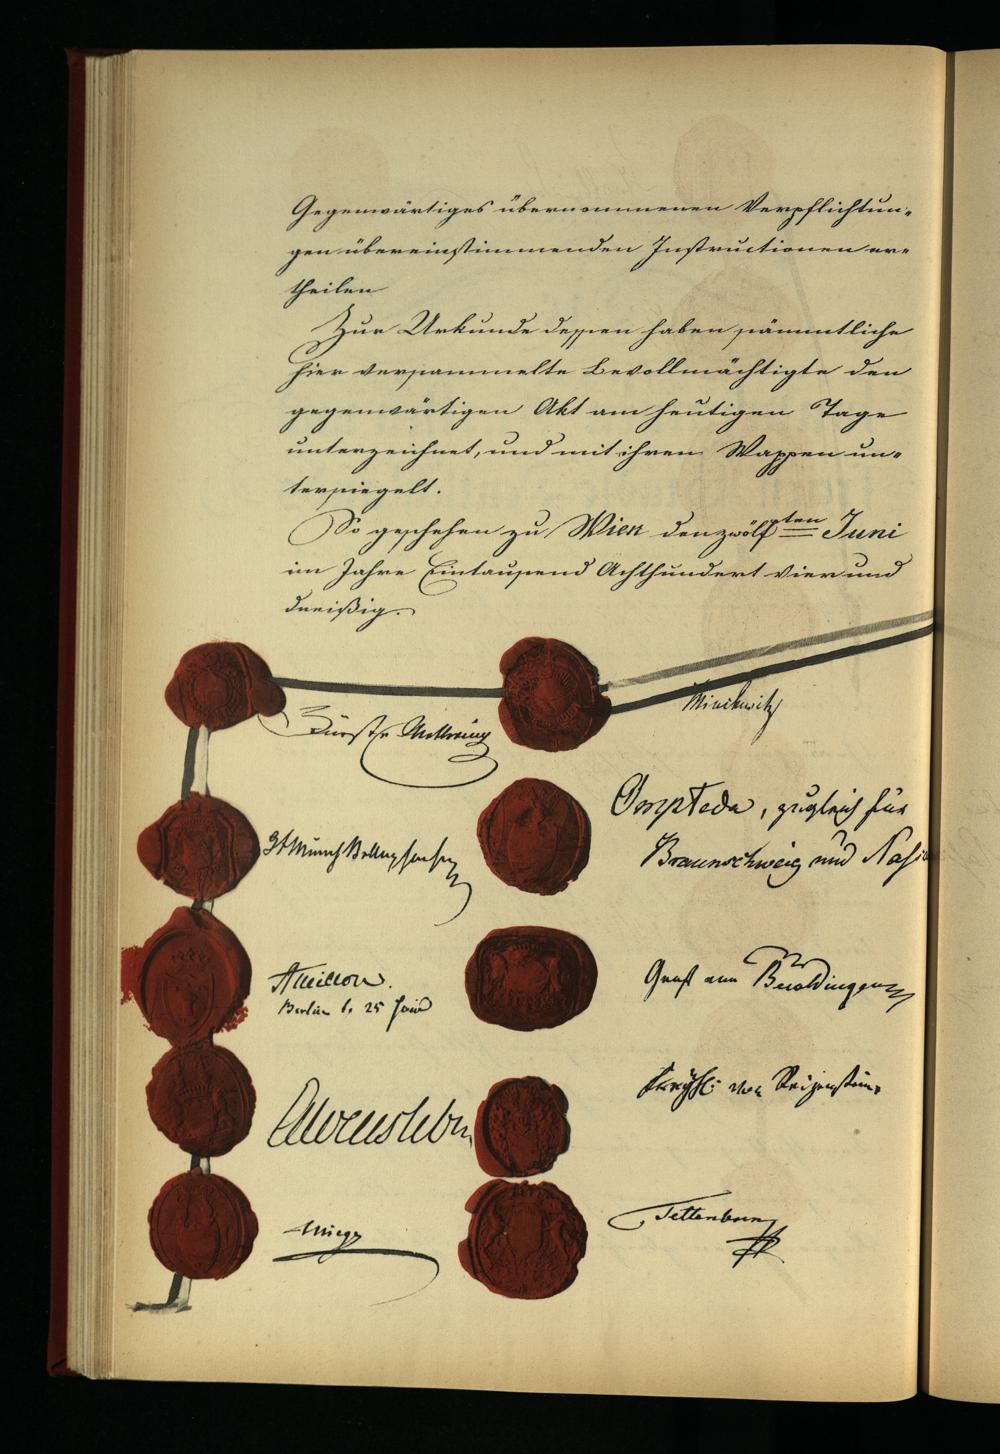 Gegenwärtiges übernommenen Verpflichtun-
gen übereinstimmenden Instructionen er-
theilen
Zur Urkunde dessen haben sämmtliche
hier versammelte Bevollmächtigte den
gegenwärtigen Akt am heutigen Tage
unterzeichnet, und mit ihren Wappen un-
tersiegelt.
So geschehen zu Wien den zwölften Juni
im Jahre Eintausend Achthundert Vier und
dreißig.
Fürst v Metternich
Minckwitz
Münch Bellinghausen
Ompteda, zugleich für
Braunschweig und
Ancillon.
Berlin d. 25
Graf von Beroldingen
Alvensleben
Freyh: von Reizenstein
Mieg
Tettenborn